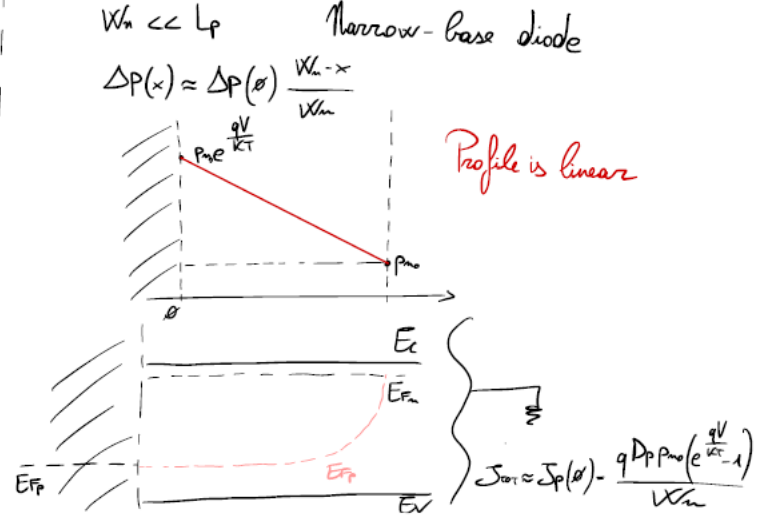 Wn << Lp Narrow-base diode
Δp(x) ≈ Δp(ø) Wn-x / Wn
pnoe qV/KT
Profile is linear
pno
ø
Ec
EFn
EFp
EFp
Ev
JTOT ≈ Jp(ø) - qDp pno(e qV/KT -1) / Wn